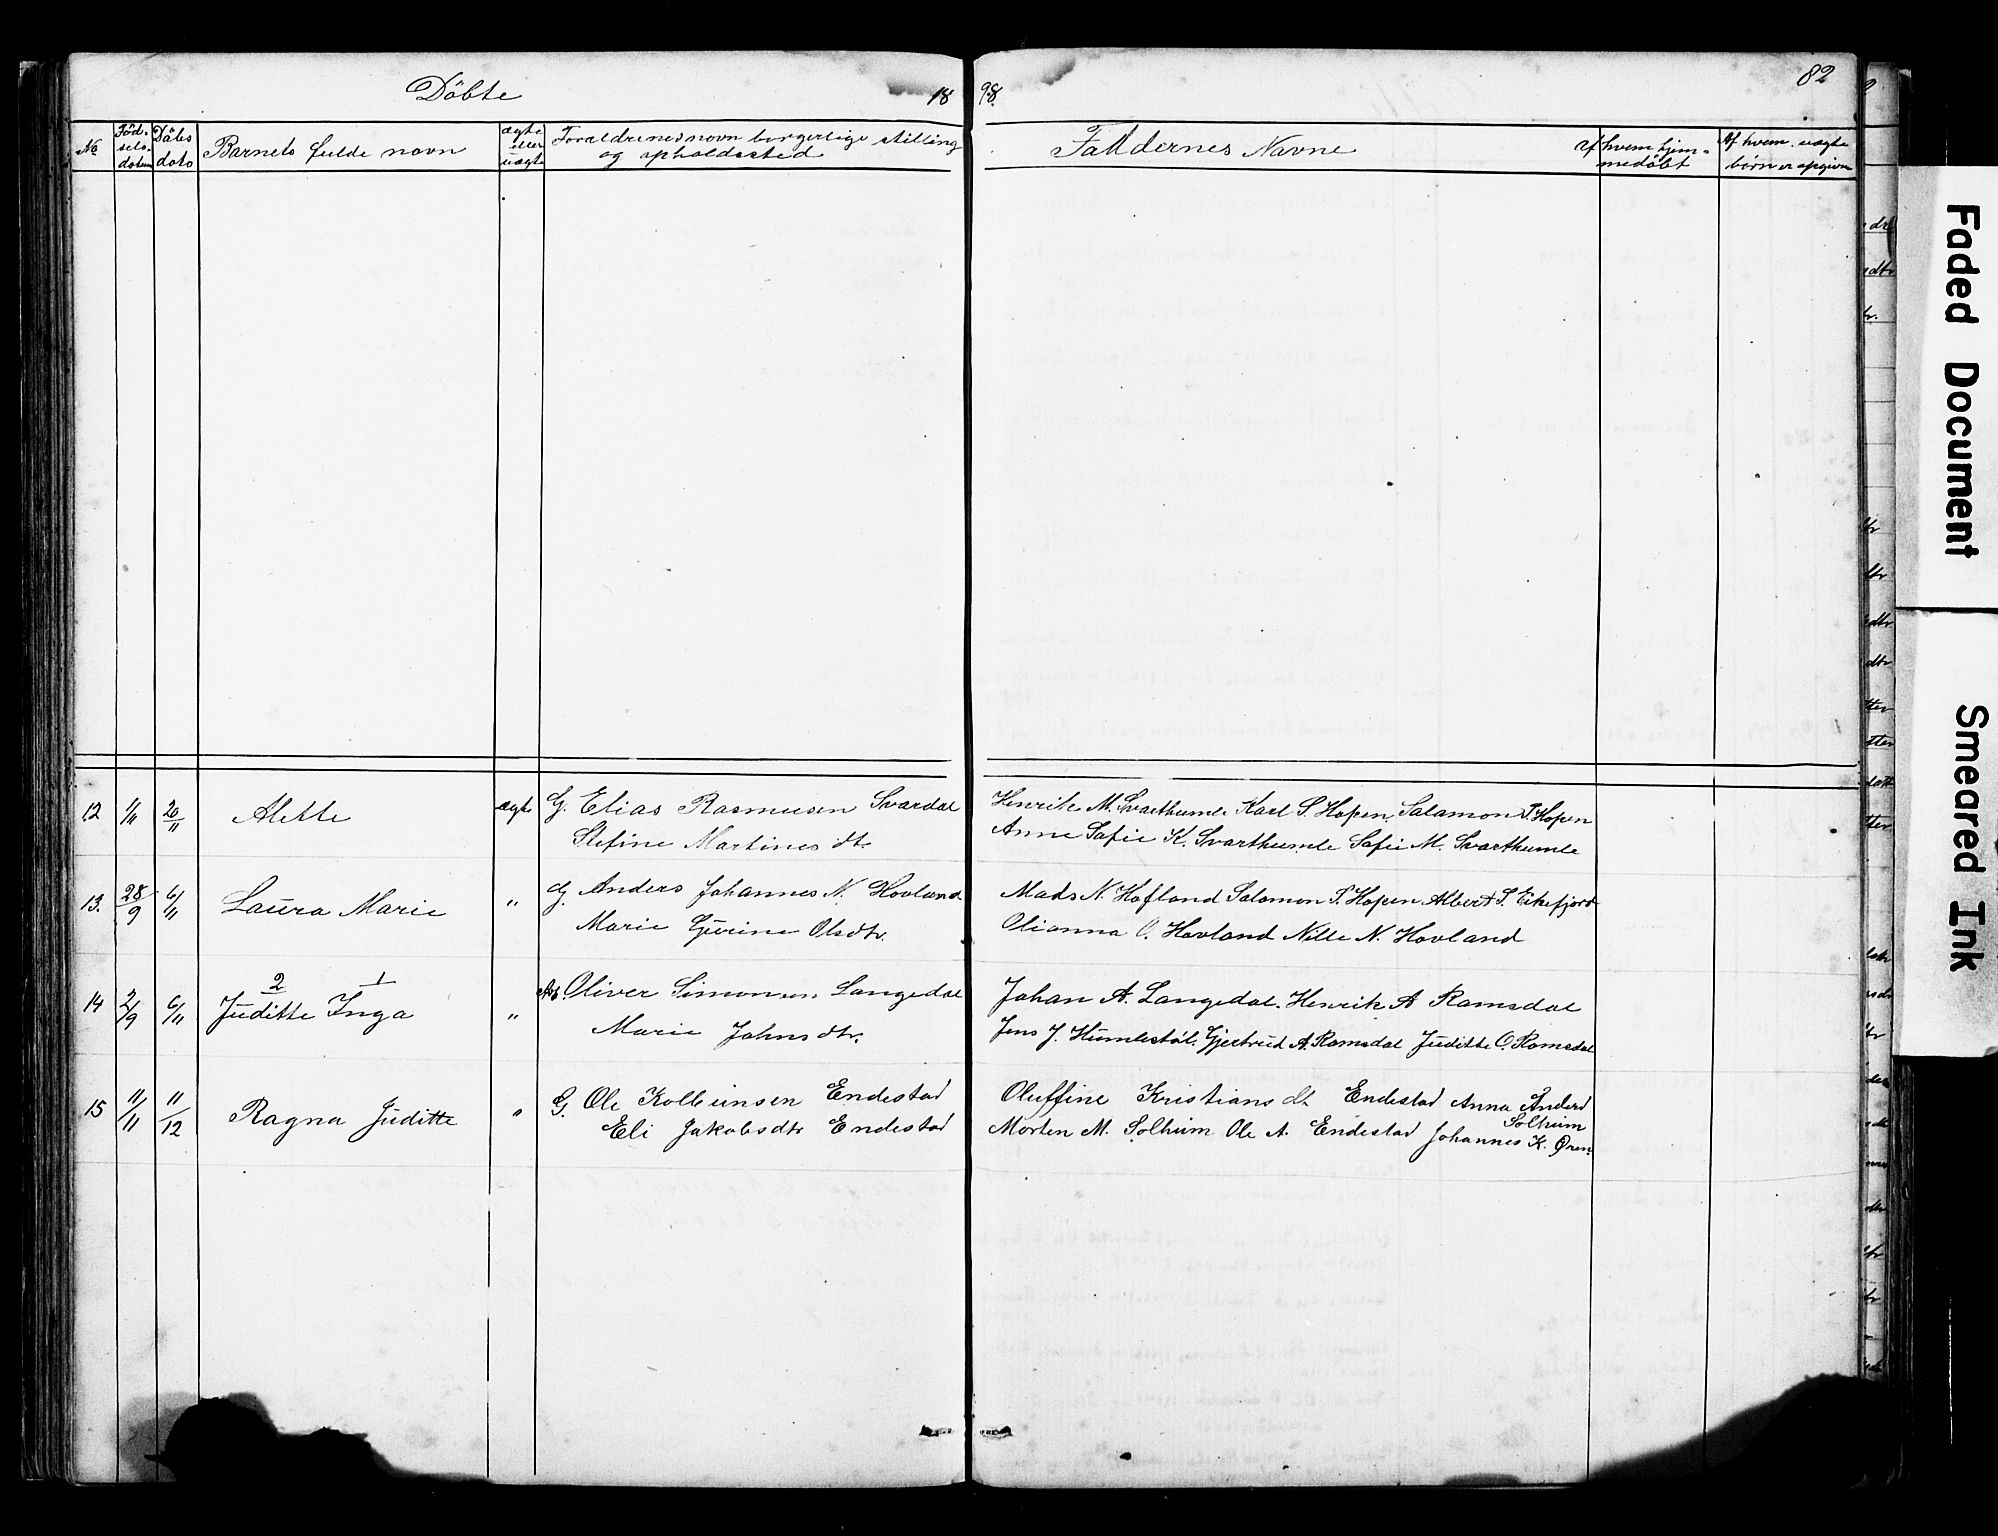 Döbte 18 98. 82
No Födselsdatum Döbs dato Barnets fulde navn ægte eller uægte Forældrenes navn borgerlige stilling og opholdssted Faddernes Navne Af hvem hjemmedöbt Af hvem uægte börn er opgivne
12 1/11 20/11 Alette ægte G. Elias Rasmusen Svardal Henrik M. Svarthumle Karl S. Hopen, Salamon S. Hopen
Stefine Martines dt. Anne Safie K. Svarthumle Safie M. Svarthumle
13. 28/9 6/11 Laura Marie " G. Anders Johannes N. Hovland Mads N. Hofland Salamon S. Hopen Albert S. Eikefjord
Marie Gurine Olsdtr. Olianna O. Hovland Nille N. Hovland
2 1
14 2/9 6/11 Juditte Inga " Oliver Simonsen Langedal Johan A. Langedal. Henrik A Ramsdal
Marie Johnsdtr. Jens J. Humlestøl. Gjertrud A. Ramsdal Juditte O. Ramsdal
15 11/11 11/12 Ragna Juditte " G. Ole Kolbeinsen Endestad Oluffine Kristiansdt Endestad Anna Anders
Solheim
Eli Jakobsdtr Endestad Morten M. Solheim Ole A. Endestad Johannes K. Øren
Faded Document
Smeared Ink